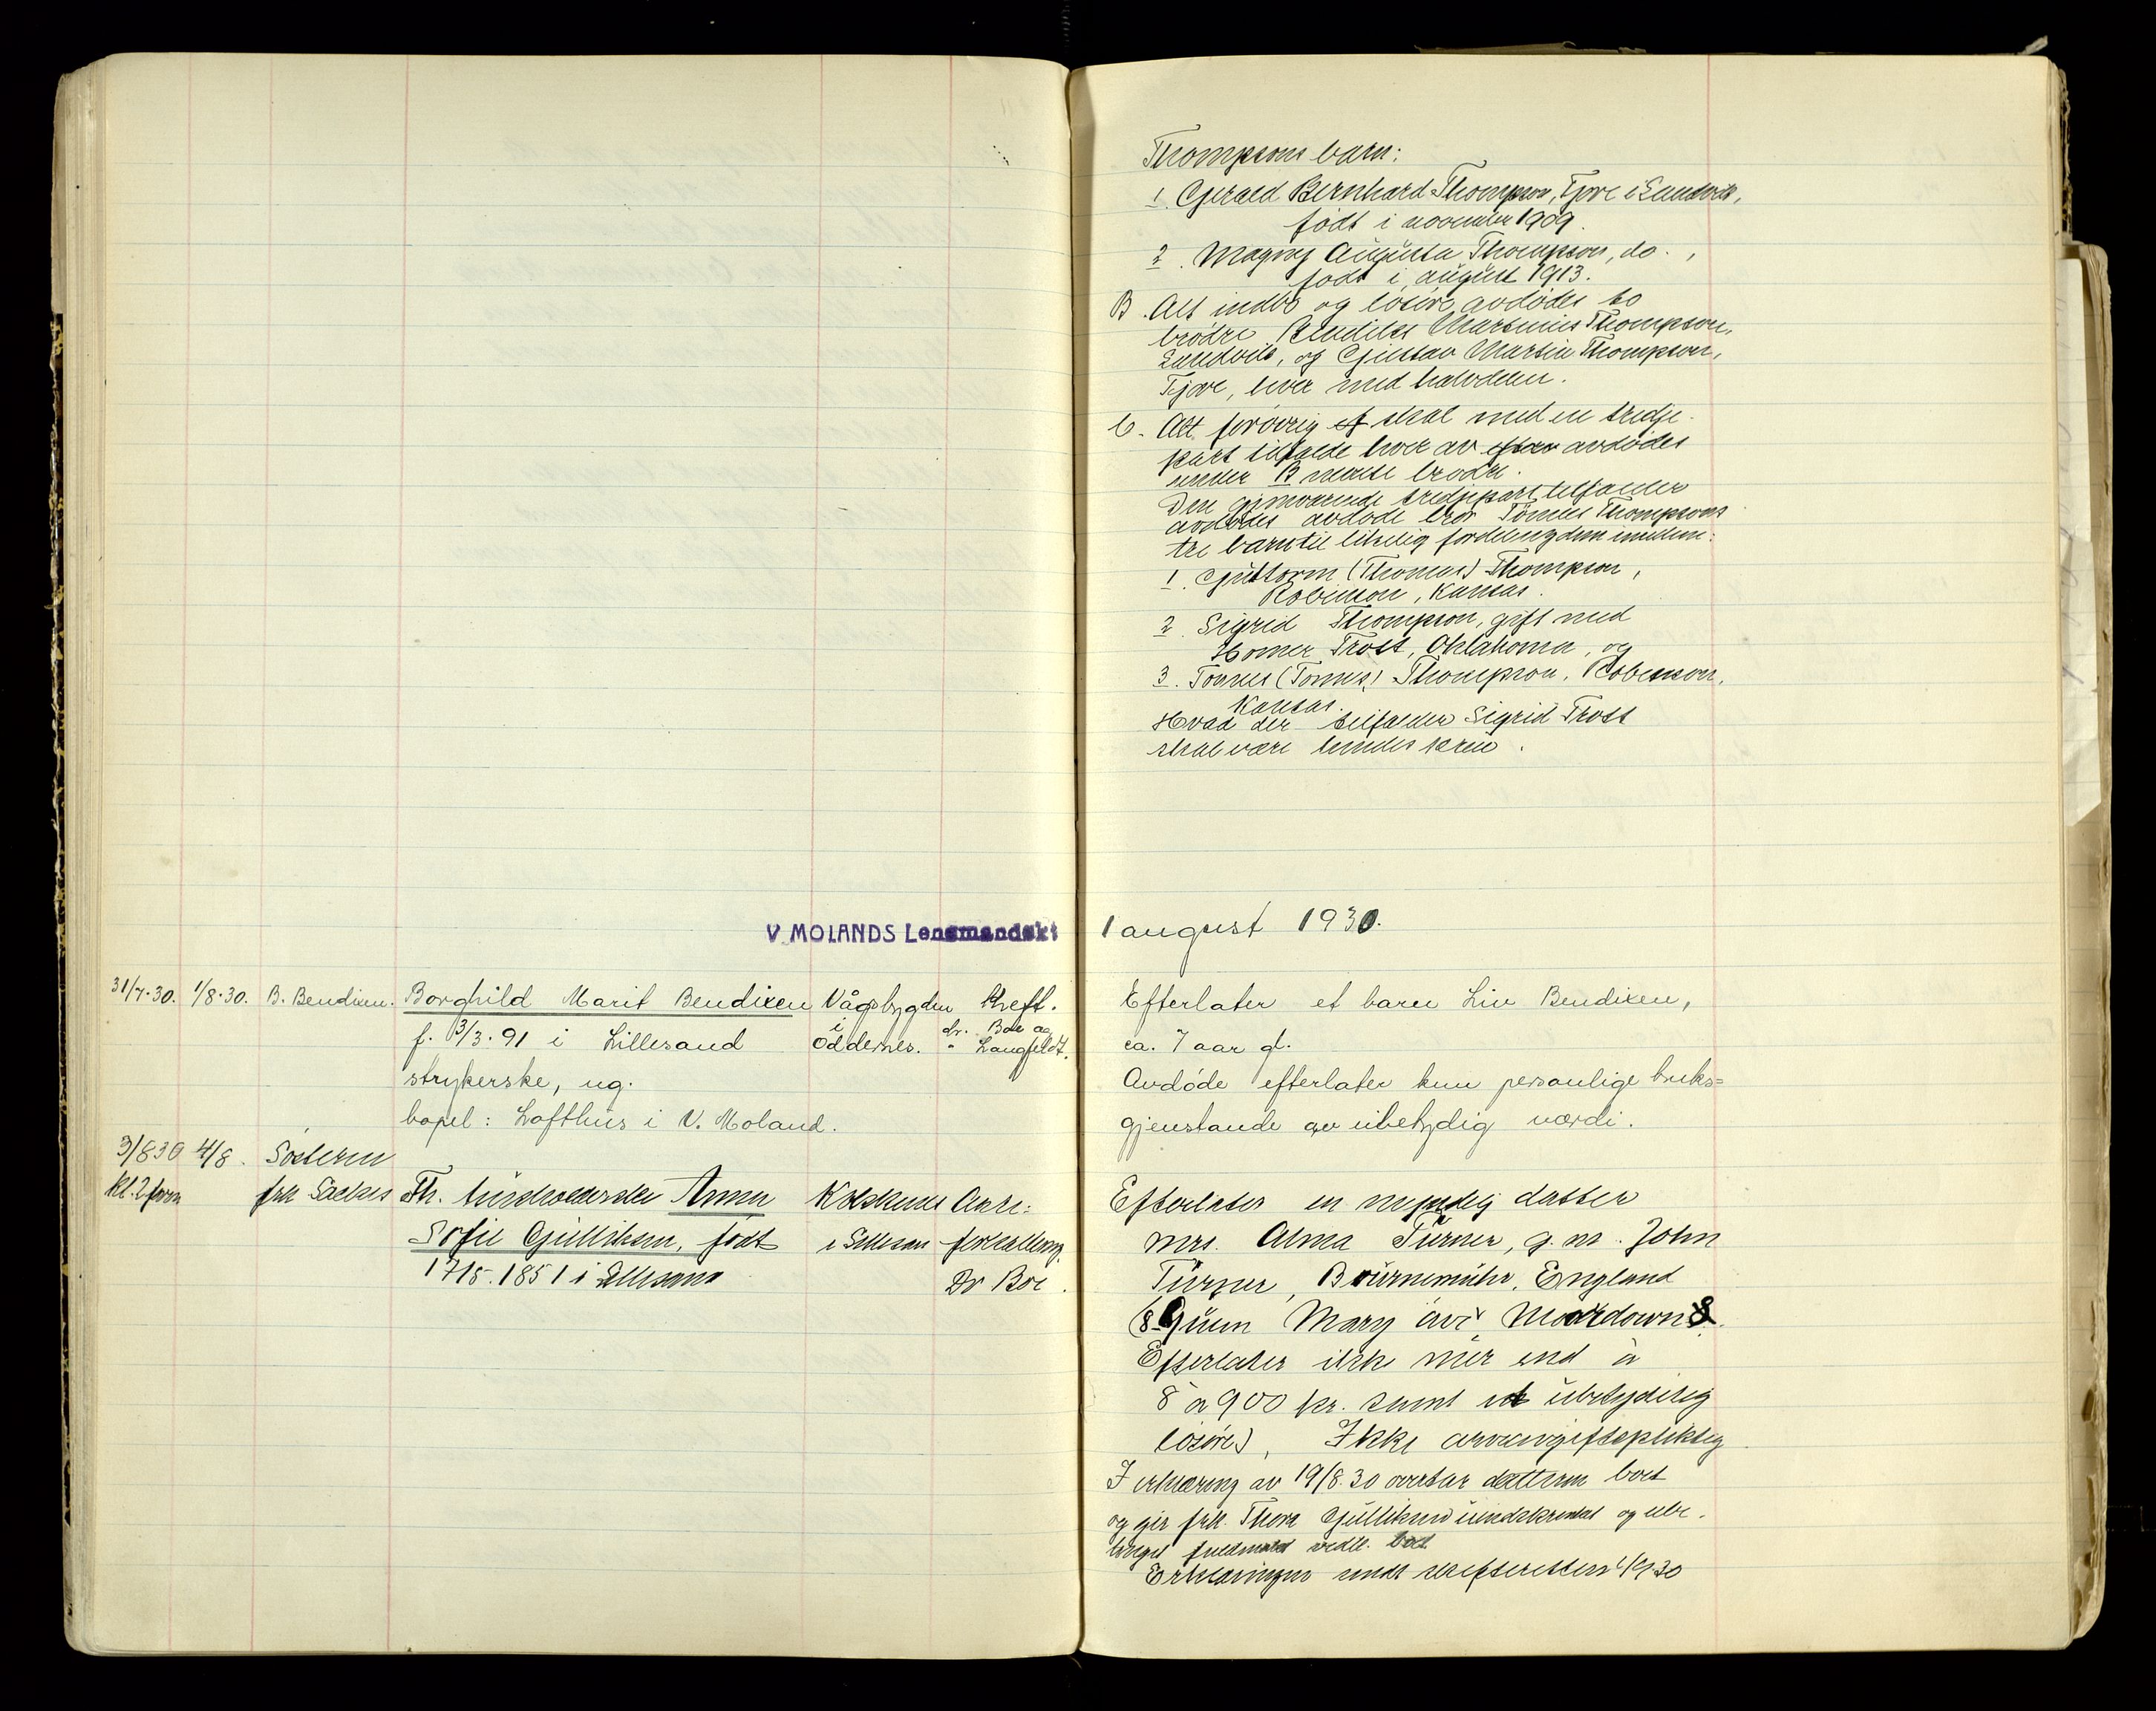 V MOLANDS Lensmandskt
31/7-30. 1/8-30. B. Bendixen. Borghild Marit Bendixen Vågsbygden Kreft.
f. 3/3.91 i Lillesand i Oddernes. dr. Boe og
" Langfeldt.
strykerske, ug.
bopel: Lofthus i V. Moland.
3/8 30 4/8. Søsteren
kl. 2 form frk Fh. husholderske Anna Kokkenes Aare:
Sofie Gulliksen, født i Lillesand forkalkning.
17/5.1851 i Lillesand Dr Boe.
Thompsons barn:
1. Gerald Bernhard Thompson, Tjore i Eundvik,
født i november 1909.
2. Magny Augusta Thompson, do.,
født i august 1913.
B. Alt indbo og løsøre avdødes to
brødre Marsinius Thompson,
og Gustav Martin Thompson,
Tjore, hver med halvdelen.
C. Alt forøvrig skal med en tredje-
part tilfalde hver av avdødes
under B nevnte brødre.
Den gjenværende tredjepart tilfalder
avdødes avdøde bror Tønnes Thompsons
tre barn til likelig fordeling dem imellem:
1. Guttorm (Thomas) Thompson,
Robinson, Kansas.
2. Sigrid Thompson, gift med
Homer Trost, Oklahoma, og
3. Tønnes (Tonnes) Thompson, Robinson,
Kansas.
Hvad der tilfalder Sigrid Trost
skal være hendes særeie.
1 august 1930.
Efterlater et barn Liv Bendixen,
ca. 7 aar gl.
Avdøde efterlater kun personlige bruks=
gjenstande av ubetydelig værdi.
Efterlater en myndig datter
Mrs. Alma Turner, g. m. John
Turner, Bournemuhr, England
(8 Queen Mary Moordown
Efterlater ikke mer end à
8 à 900 kr. samt ubetydelig
løsøre), Ikke arveavgiftspliktig
I erklæring av 19/8.30 overtar datteren boet
og gir frk. Thora Gulliksen uindskrænket og ube-
tinget fuldmakt vedk. boet
Erklæringen sendt skifteretten 1/9 30